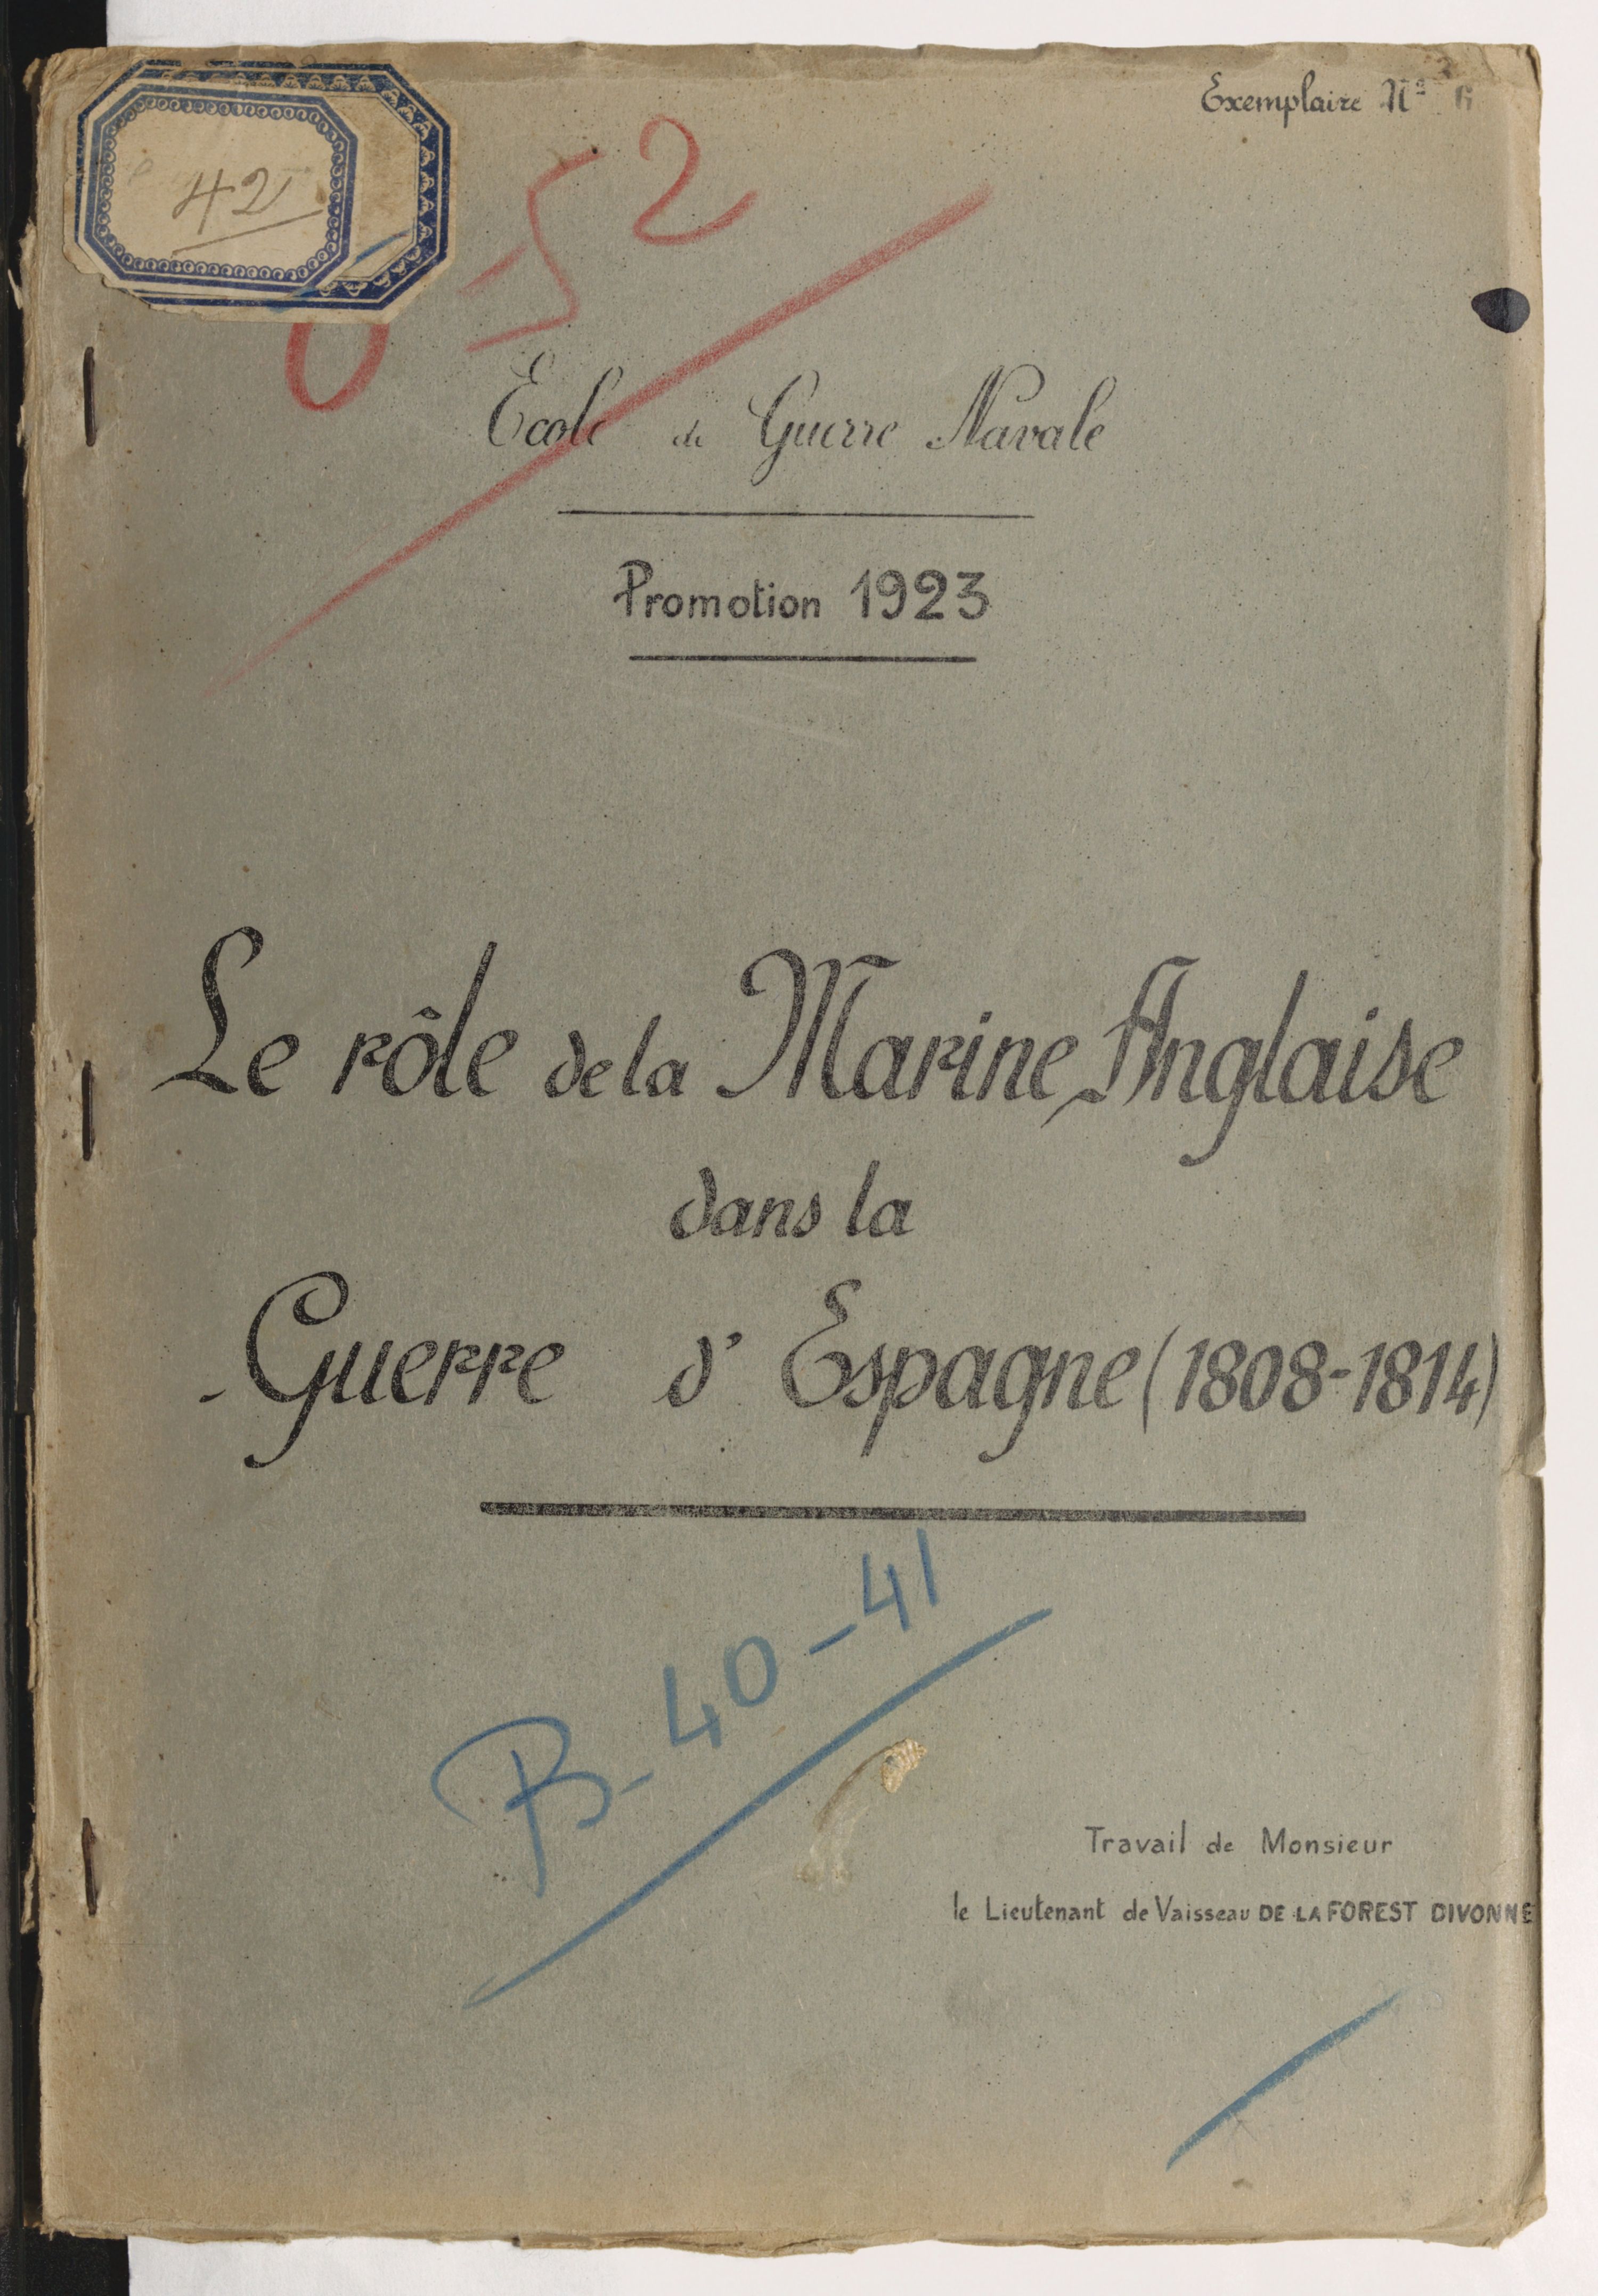 Exemplaire Nº 6
42
52
Ecole de Guerre Navale
Promotion 1923
Le rôle de la Marine Anglaise
dans la
Guerre d'Espagne (1808-1814)
B-40-41
Travail de Monsieur
le Lieutenant de Vaisseau DE LA FOREST DIVONNE